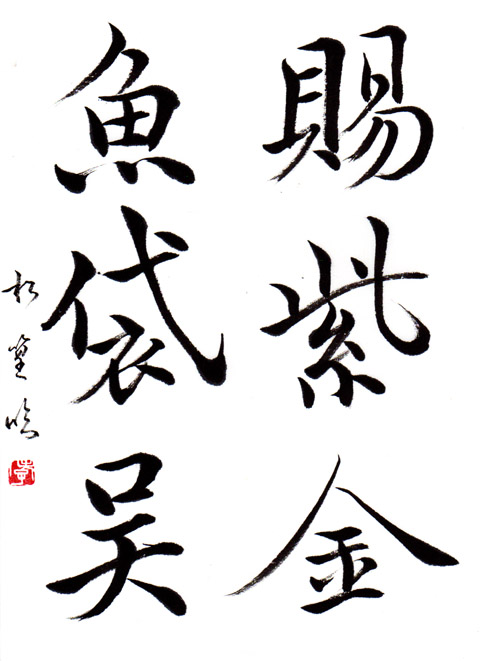 賜紫金
魚袋吴